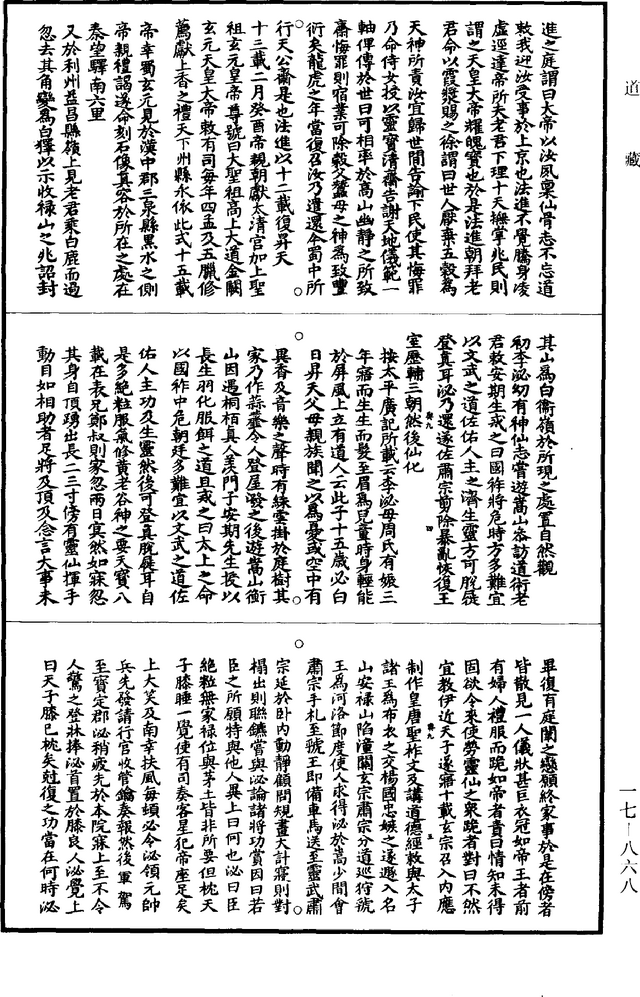 道藏
進之庭謂曰大帝以汝夙稟仙骨志不忘道
敕我迎汝受事於上京也法進不覺騰身凌
虛逕達帝所天老君下理十天撫掌兆民則
謂之天皇大帝耀魄寶也於是法進朝拜老
君命以霞漿賜之徐謂曰世人厭棄五穀為
天神所責汝宜歸世間告諭下民使其悔罪
乃命侍女授以靈寶清齋告謝天地儀範一
軸俾傳於世曰可相率於高山幽靜之所致
齋悔罪則宿業可除穀父蠶母之神為致豐
衍矣龍虎之年當復召汝乃遣還今蜀中所
行天公齋是也法進以十二載復昇天
十三載二月癸酉帝親朝獻太清宮加上聖
祖玄元皇帝尊號曰大聖祖高上大道金闕
玄元天皇大帝敕有司每年四孟及五臘修
薦獻上香之禮天下州縣永依此式十五載
帝幸蜀玄元見於漢中郡三泉縣黑水之側
帝親禮謁遂命刻石像真容於所在之處在
秦望驛南六里
又於利州益昌縣嶺上見老君乘白鹿而過
忽去其角變為白獐以示收祿山之兆詔封
其山為白衛嶺於所現之處置自然觀
初李泌幼有神仙志嘗遊嵩山叅訪道術老
君敕安期生戒之曰國祚將危時方多難宜
以文武之道佐佑人主之濟生靈方可脫屣
登真耳泌乃還遂佐肅宗剪除暴亂恢復王
室歷輔三朝然後仙化
按太平廣記所載云李泌母周氏有娠三
年寤而生生而髮至眉為兒童時身輕能
於屏風上立有道人云此子十五歲必白
日昇天父母親族聞之以為憂或空中有
異香及音樂之聲時有綵雲掛於庭樹其
家乃作蒜虀令人登屋潑之後遊嵩山衡
山因遇桐栢真人羨門子安期先生授以
長生羽化服餌之道且戒之曰太上之命
以國祚中危朝廷多難宜以文武之道佐
佑人主功及生靈然後可登真脫屣耳自
是多絕粒服氣修黃老谷神之要天寶八
載在表兄鄭叔則家忽兩日冥然如寐忽
其身自頂踴出長二三寸傍有靈仙揮手
動目如相助者足將及頂及念言大事未
畢復有庭闈之戀願終家事於是在傍者
皆散見一人儀狀甚巨衣冠如帝王者前
有婦人禮服而跪如帝者責曰情知未得
因欲令來使勞靈仙之眾跪者對曰不然
宜教伊近天子遂寤十載玄宗召入內應
制作皇唐聖祚文及講道德經敕與太子
諸王為布衣之交楊國忠嫉之遂遯入名
山安祿山陷潼關玄宗肅宗分道巡狩號
王為河洛節度使人求得泌於嵩少間會
肅宗手札至號王即備車馬送至靈武肅
宗延於卧內動靜顧問規畫大計寐則對
榻出則聯鑣嘗與泌論諸將功賞因曰若
臣之所願特與他人異上曰何也泌曰臣
絕粒無家祿位與茅土皆非所要但枕天
子膝睡一覺使有司奏客星犯帝座足矣
上大笑及南幸扶風每頓必令泌領元帥
兵先發請行宮收管鑰奏報然後軍駕
至寶定郡泌稍疲先於本院寐上至不令
人驚之登牀捧泌首置於膝良久泌覺上
曰天子膝已枕矣尅復之功當在何時泌
一七—八六八